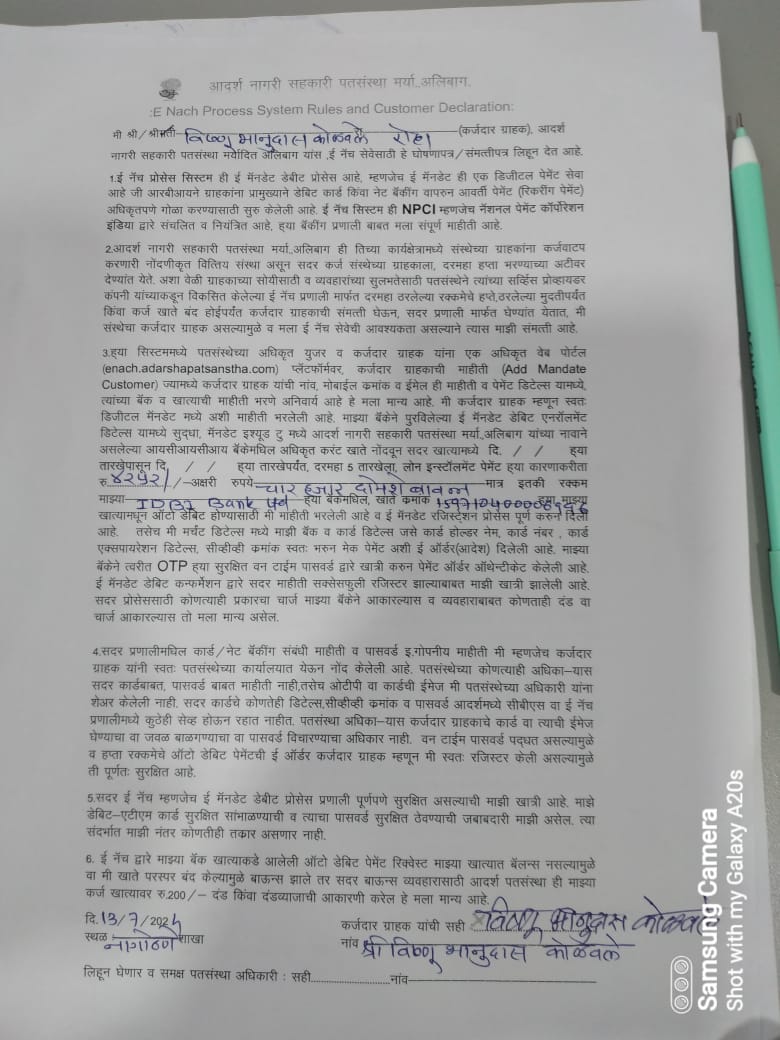 आदर्श नागरी सहकारी पतसंस्था मर्या.,अलिबाग.
:E Nach Process System Rules and Customer Declaration:
मी श्री/श्रीमती विष्णू भानुदास कोळवले रोहा (कर्जदार ग्राहक), आदर्श
नागरी सहकारी पतसंस्था मर्यादित अलिबाग यांस ,ई नॅच सेवेसाठी हे घोषणापत्र/संमत्तीपत्र लिहून देत आहे.
1.ई नॅच प्रोसेस सिस्टिम ही ई मॅनडेट डेबीट प्रोसेस आहे, म्हणजेच ई मॅनडेट ही एक डिजीटल पेमेंट सेवा
आहे जी आरबीआयने ग्राहकांना प्रामुख्याने डेबिट कार्ड किंवा नेट बॅकींग वापरुन आवर्ती पेमेंट (रिकरींग पेमेंट)
अधिकृतपणे गोळा करण्यासाठी सुरु केलेली आहे. ई नॅच सिस्टिम ही NPCI म्हणजेच नॅशनल पेमेंट कॉर्पोरेशन
इंडिया द्वारे संचलित व नियंत्रित आहे, ह्या बॅकींग प्रणाली बाबत मला संपूर्ण माहीती आहे.
2.आदर्श नागरी सहकारी पतसंस्था मर्या.,अलिबाग ही तिच्या कार्यक्षेत्रामध्ये संस्थेच्या ग्राहकांना कर्जवाटप
करणारी नोंदणीकृत वित्तिय संस्था असून सदर कर्ज संस्थेच्या ग्राहकाला, दरमहा हप्ता भरण्याच्या अटीवर
देण्यांत येते. अशा वेळी ग्राहकाच्या सोयीसाठी व व्यवहारांच्या सुलभतेसाठी पतसंस्थेने त्यांच्या सर्व्हिस प्रोव्हायडर
कंपनी यांच्याकडून विकसित केलेल्या ई नॅच प्रणाली मार्फत दरमहा ठरलेल्या रक्कमेचे हप्ते,ठरलेल्या मुदतीपर्यंत
किंवा कर्ज खाते बंद होईपर्यंत कर्जदार ग्राहकाची संमत्ती घेऊन, सदर प्रणाली मार्फत घेण्यांत येतात, मी
संस्थेचा कर्जदार ग्राहक असल्यामुळे व मला ई नॅच सेवेची आवश्यकता असल्याने त्यास माझी संमत्ती आहे.
3.हया सिस्टिममध्ये पतसंस्थेच्या अधिकृत युजर व कर्जदार ग्राहक यांना एक अधिकृत वेब पोर्टल
(enach.adarshapatsanstha.com) प्लॅटफॉर्मवर, कर्जदार ग्राहकाची माहीती (Add Mandate
Customer) ज्यामध्ये कर्जदार ग्राहक यांची नांव, मोबाईल क्रमांक व ईमेल ही माहीती व पेमेंट डिटेल्स यामध्ये,
त्यांच्या बॅंक व खात्याची माहीती भरणे अनिवार्य आहे हे मला मान्य आहे. मी कर्जदार ग्राहक म्हणून स्वतः
डिजीटल मॅनडेट मध्ये अशी माहीती भरलेली आहे. माझ्या बॅकेने पुरविलेल्या ई मॅनडेट डेबिट एनरॉलमेंट
डिटेल्स यामध्ये सुद्धा, मॅनडेट इश्यूड टु मध्ये आदर्श नागरी सहकारी पतसंस्था मर्या.,अलिबाग यांच्या नावाने
असलेल्या आयसीआयसीआय बॅकेमधिल अधिकृत करंट खाते नोंदवून सदर खात्यामध्ये दि. / / ह्या
तारखेपासून दि. / / ह्या तारखेपर्यंत, दरमहा 5 तारखेला, लोन इन्स्टॉलमेंट पेमेंट ह्या कारणाकरीता
रु.४२५२/ /-अक्षरी रुपये चार हजार दोनशे बावन्न मात्र इतकी रक्कम
माझ्या IDBI Bank ह्या बॅकेमधिल, खाते क्रमांक ह्या माझ्या
खात्यामधून ऑटो डेबिट होण्यासाठी मी माहीती भरलेली आहे व ई मॅनडेट रजिस्ट्रेशन प्रोसेस पूर्ण करुन दिली
आहे. तसेच मी मर्चंट डिटेल्स मध्ये माझी बॅंक व कार्ड डिटेल्स जसे कार्ड होल्डर नेम, कार्ड नंबर , कार्ड
एक्सपायरेशन डिटेल्स, सीव्हीव्ही क्रमांक स्वतः भरुन मेक पेमेंट अशी ई ऑर्डर(आदेश) दिलेली आहे. माझ्या
बॅकेने त्वरीत OTP ह्या सुरक्षित वन टाईम पासवर्ड द्वारे खात्री करुन पेमेंट ऑर्डर ऑथेन्टीकेट केलेली आहे.
ई मॅनडेट डेबिट कन्फर्मेशन द्वारे सदर माहीती सक्सेसफुली रजिस्टर झाल्याबाबत माझी खात्री झालेली आहे.
सदर प्रोसेससाठी कोणत्याही प्रकारचा चार्ज माझ्या बॅकेने आकारल्यास व व्यवहाराबाबत कोणताही दंड वा
चार्ज आकारल्यास तो मला मान्य असेल.
4.सदर प्रणालीमधिल कार्ड/नेट बॅकींग संबंधी माहीती व पासवर्ड इ.गोपनीय माहीती मी म्हणजेच कर्जदार
ग्राहक यांनी स्वतः पतसंस्थेच्या कार्यालयात येऊन नोंद केलेली आहे. पतसंस्थेच्या कोणत्याही अधिका-यास
सदर कार्डबाबत, पासवार्ड बाबत माहीती नाही,तसेच ओटीपी वा कार्डची ईमेज मी पतसंस्थेच्या अधिकारी यांना
शेअर केलेली नाही. सदर कार्डचे कोणतेही डिटेल्स,सीव्हीव्ही क्रमांक व पासवर्ड आदर्शमध्ये सीबीएस वा ई नॅच
प्रणालीमध्ये कुठेही सेव्ह होऊन रहात नाहीत. पतसंस्था अधिका-यास कर्जदार ग्राहकाचे कार्ड वा त्याची ईमेज
घेण्याचा वा जवळ बाळगण्याचा वा पासवर्ड विचारण्याचा अधिकार नाही. वन टाईम पासवर्ड पद्धत असल्यामुळे
व हप्ता रक्कमेचे ऑटो डेबिट पेमेंटची ई ऑर्डर कर्जदार ग्राहक म्हणून मी स्वतः रजिस्टर केली असल्यामुळे
ती पूर्णतः सुरक्षित आहे.
5.सदर ई नॅच म्हणजेच ई मॅनडेट डेबीट प्रोसेस प्रणाली पूर्णपणे सुरक्षित असल्याची माझी खात्री आहे. माझे
डेबिट–एटीएम कार्ड सुरक्षित सांभाळण्याची व त्याचा पासवर्ड सुरक्षित ठेवण्याची जबाबदारी माझी असेल. त्या
संदर्भात माझी नंतर कोणतीही तक्रार असणार नाही.
6. ई नॅच द्वारे माझ्या बॅक खात्याकडे आलेली ऑटो डेबिट पेमेंट रिक्वेस्ट माझ्या खात्यात बॅलन्स नसल्यामुळे
वा मी खाते परस्पर बंद केल्यामुळे बाऊन्स झाले तर सदर बाऊन्स व्यवहारासाठी आदर्श पतसंस्था ही माझ्या
कर्ज खात्यावर रु.200/– दंड किंवा दंडव्याजाची आकारणी करेल हे मला मान्य आहे.
दि.13/7/2024
कर्जदार ग्राहक यांची सही विष्णू भानुदास कोळवले
स्थळ : नागोठणे शाखा
नांव श्री विष्णू भानुदास कोळवले
लिहून घेणार व समक्ष पतसंस्था अधिकारी : सही नांव
Samsung Camera
Shot with my Galaxy A20s